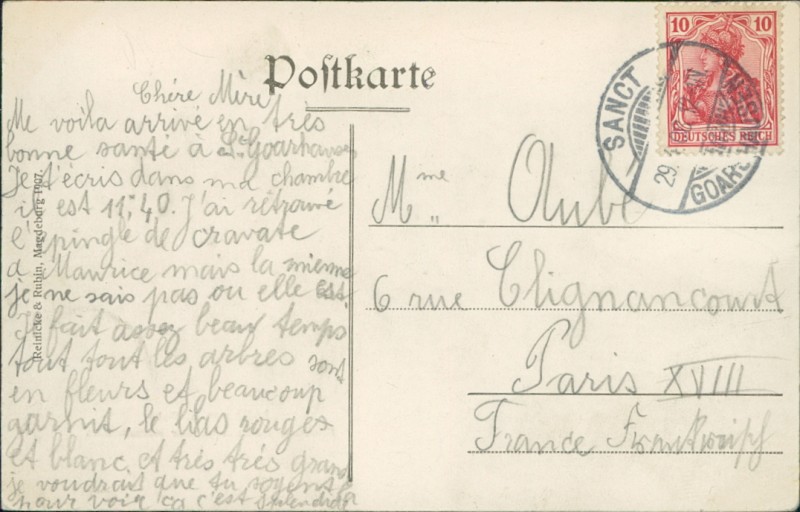 Postkarte
Chére Mère
Me voila arrivé en très
bonne santé à St Goarhausen
Je t'écris dans ma chambre
il est 11,40. J'ai retrouvé
l'épingle de cravate
d Maurice mais la mienne
je ne sais pas ou elle est.
Il fait assez beau temps
tout tout les arbres sont
en fleurs et beaucoup
garnit, le lilas rouges
et blanc et très très grand
je voudrait que tu soyent
pour voir ca c'est splendide
Reinicke & Rubin, Magdeburg 1907.
10 10
DEUTSCHES REICH
SANCT
29.
GOARS
Mme Aubl
6 rue Clignancourt
Paris XVIII
France Frankreich